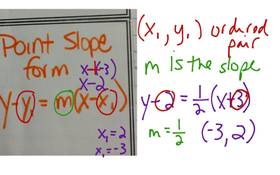 Point Slope
form
x-(-3)
x-2
y-y₁ = m(x-x₁)
x₁ = 2
x₁ = -3
(x₁, y₁) ordered
pair
m is the slope
y-2 = 1/2 (x+3)
m = 1/2 (-3, 2)